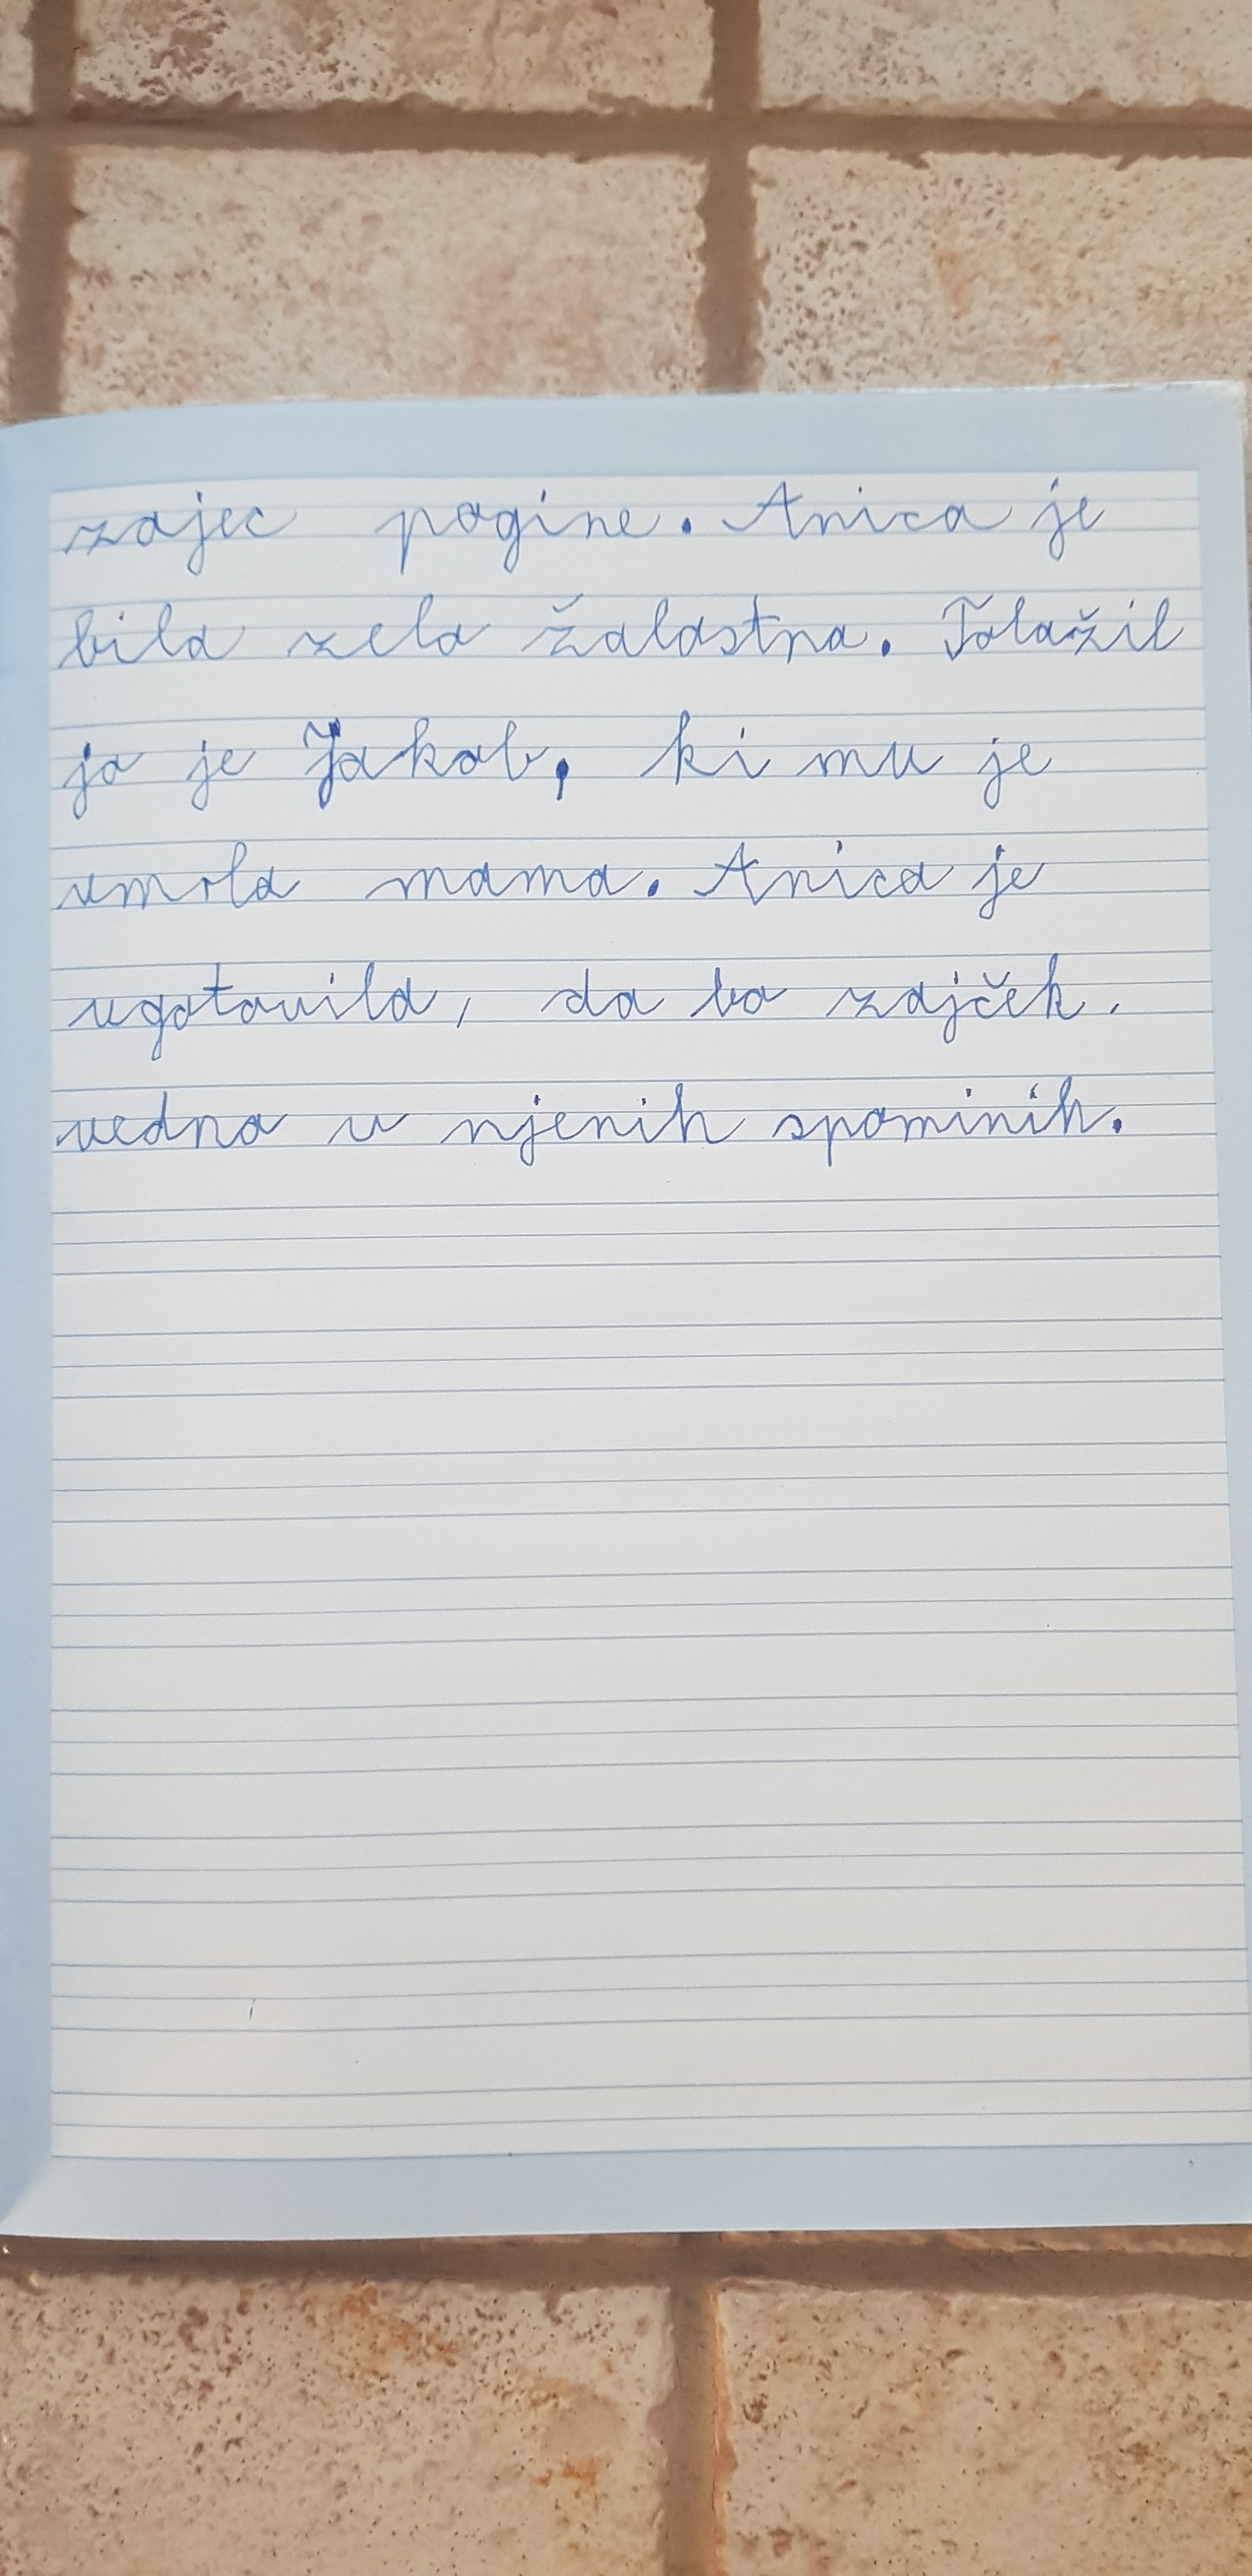 zajec pogine. Anica je
bila zelo žalostna. Tolažil
jo je Jakob, ki mu je
umrla mama. Anica je
ugotovila, da bo zajček
vedno v njenih spominih.